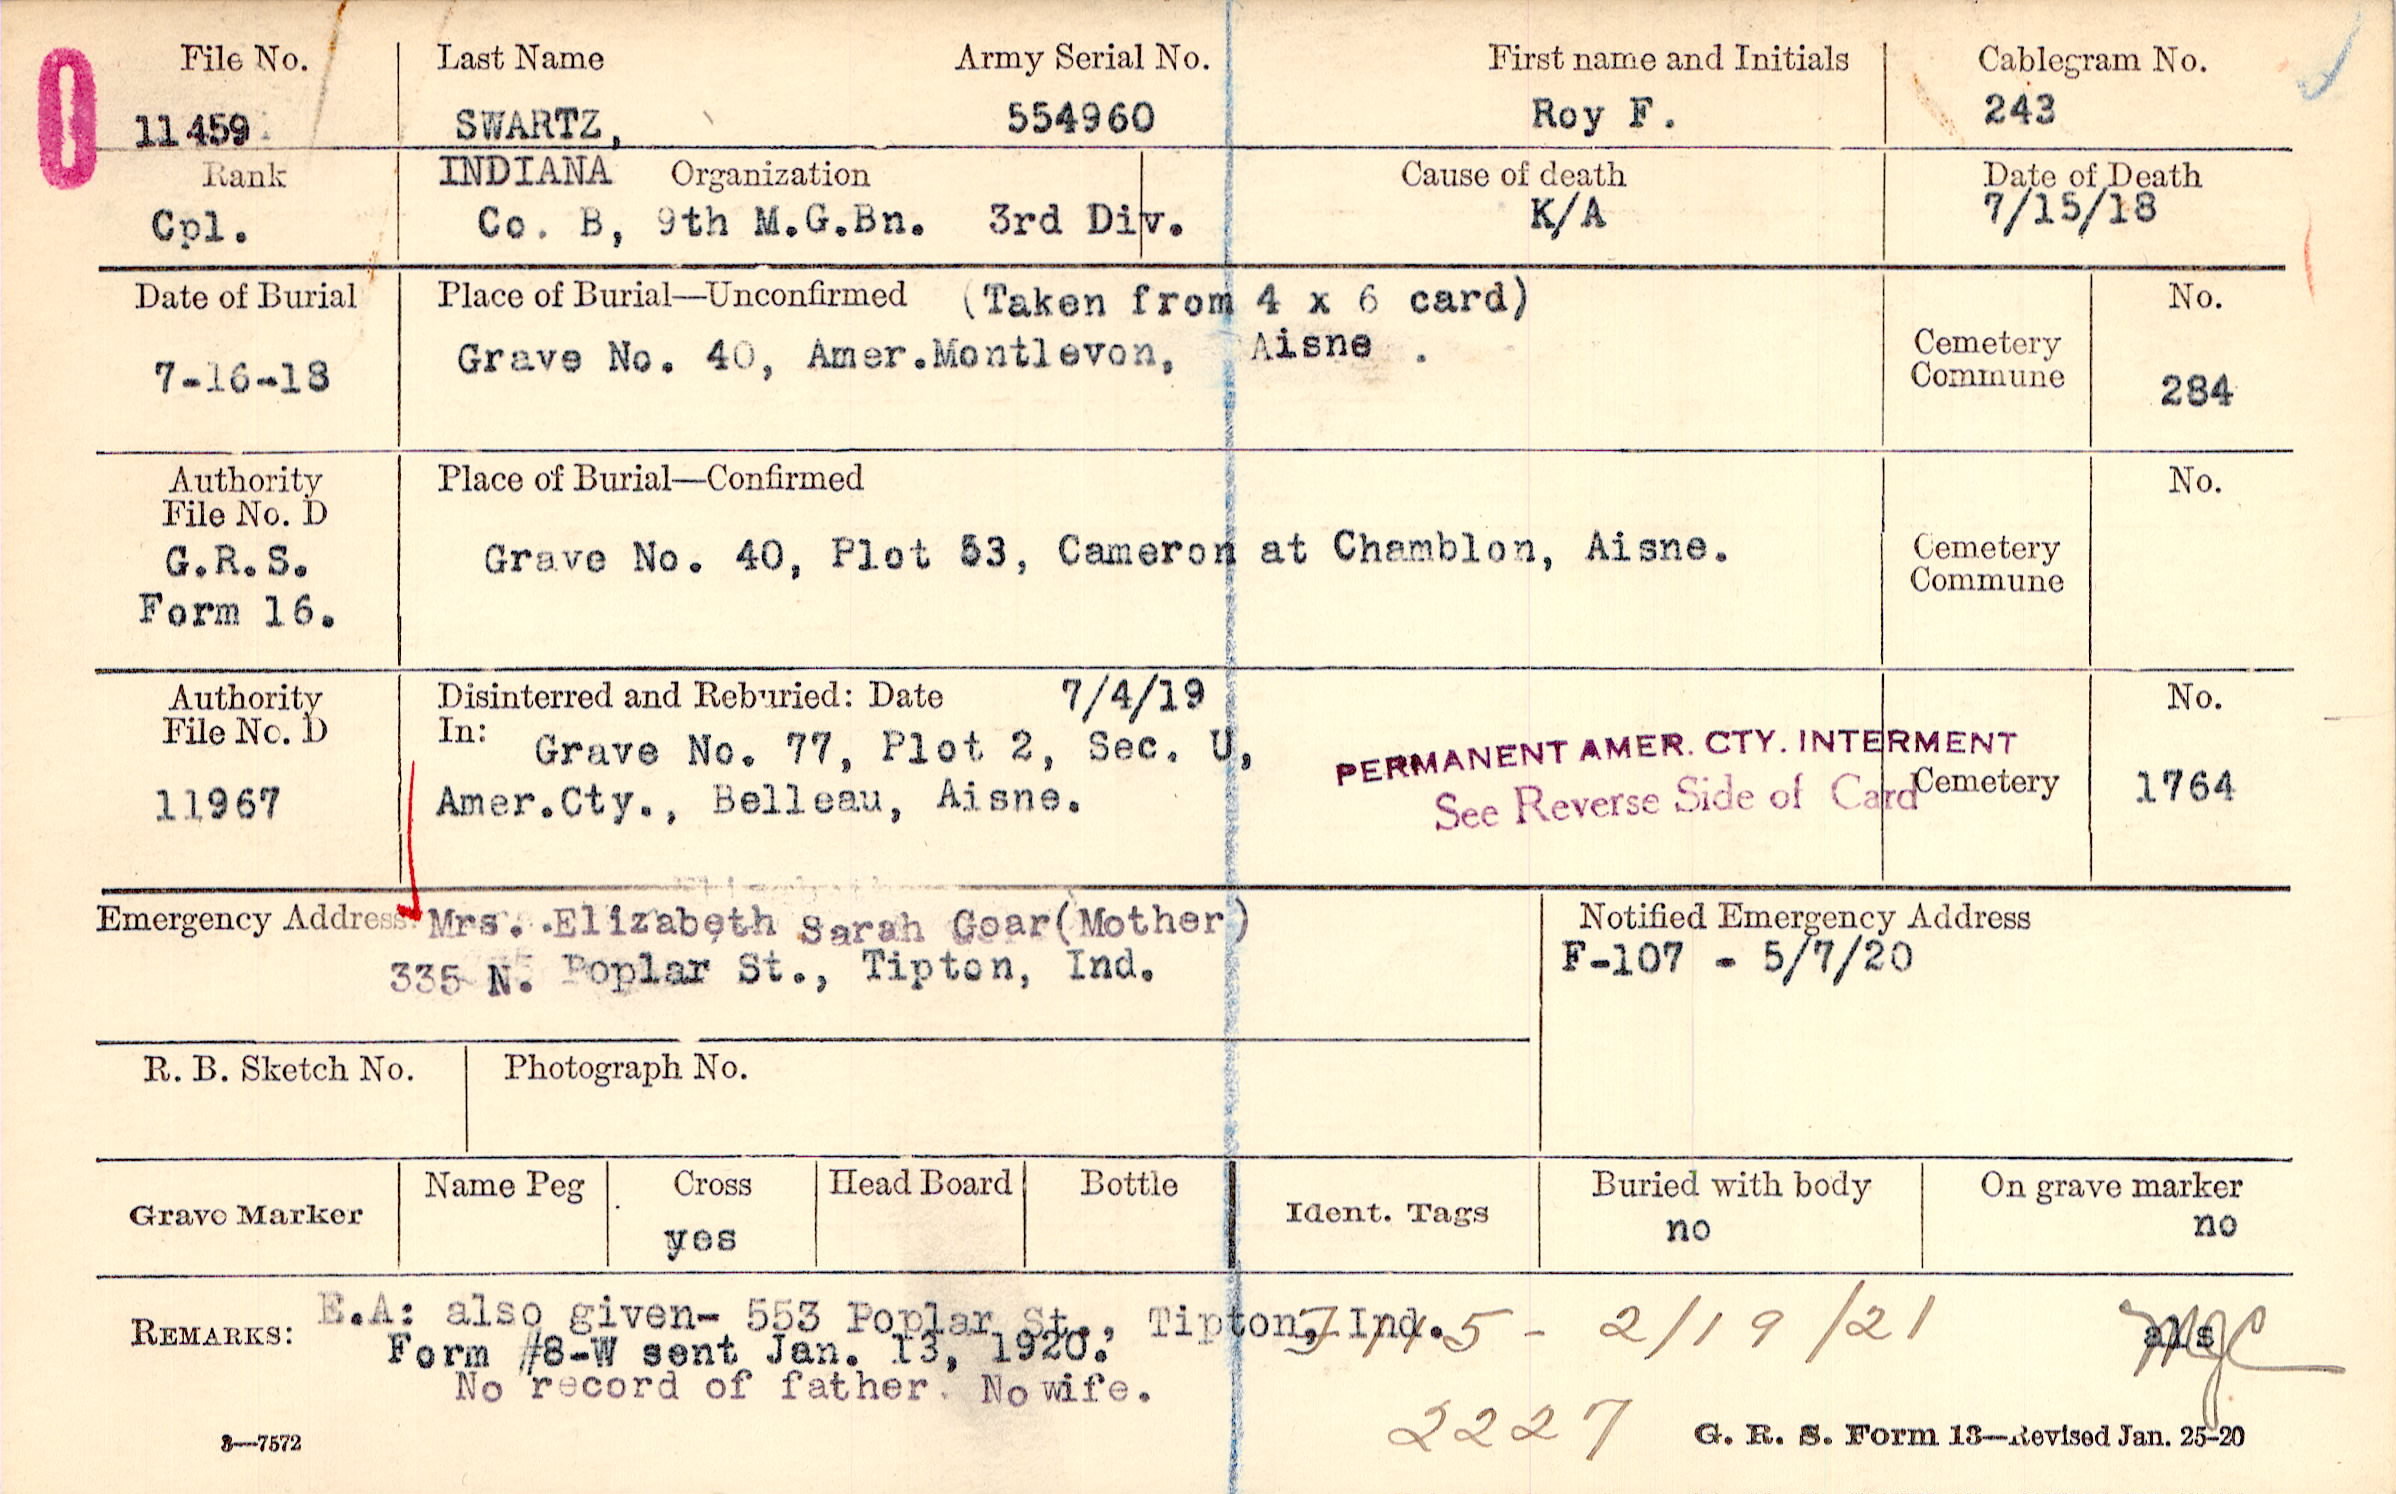 File No. Last Name Army Serial No. First name and Initials Cablegram No.
11459 SWARTZ, 554960 Roy F. 243
Rank INDIANA Organization Cause of death Date of Death
Cpl. Co. B, 9th M.G.Bn. 3rd Div. K/A 7/15/18
Date of Burial Place of Burial—Unconfirmed (Taken from 4 x 6 card) No.
7-16-18 Grave No. 40, Amer.Montlevon, Aisne . Cemetery
Commune 284
Authority Place of Burial—Confirmed No.
File No. D
G.R.S. Grave No. 40, Plot 53, Cameron at Chamblon, Aisne. Cemetery
Form 16. Commune
Authority Disinterred and Reburied: Date 7/4/19 No.
File No. D In: Grave No. 77, Plot 2, Sec. U, PERMANENT AMER. CTY. INTERMENT
11967 Amer.Cty., Belleau, Aisne. See Reverse Side of Card Cemetery 1764
Emergency Address Mrs. Elizabeth Sarah Goar(Mother) Notified Emergency Address
335 N. Poplar St., Tipton, Ind. F-107 - 5/7/20
R. B. Sketch No. Photograph No.
Grave Marker Name Peg Cross Head Board Bottle Ident. Tags Buried with body On grave marker
yes no no
REMARKS: E.A: also given- 553 Poplar St., Tipton, Ind. - 2/19/21 als
Form #8-W sent Jan. 13, 1920.
No record of father. No wife.
2227
3—7572 G. R. S. Form 13—Revised Jan. 25-20